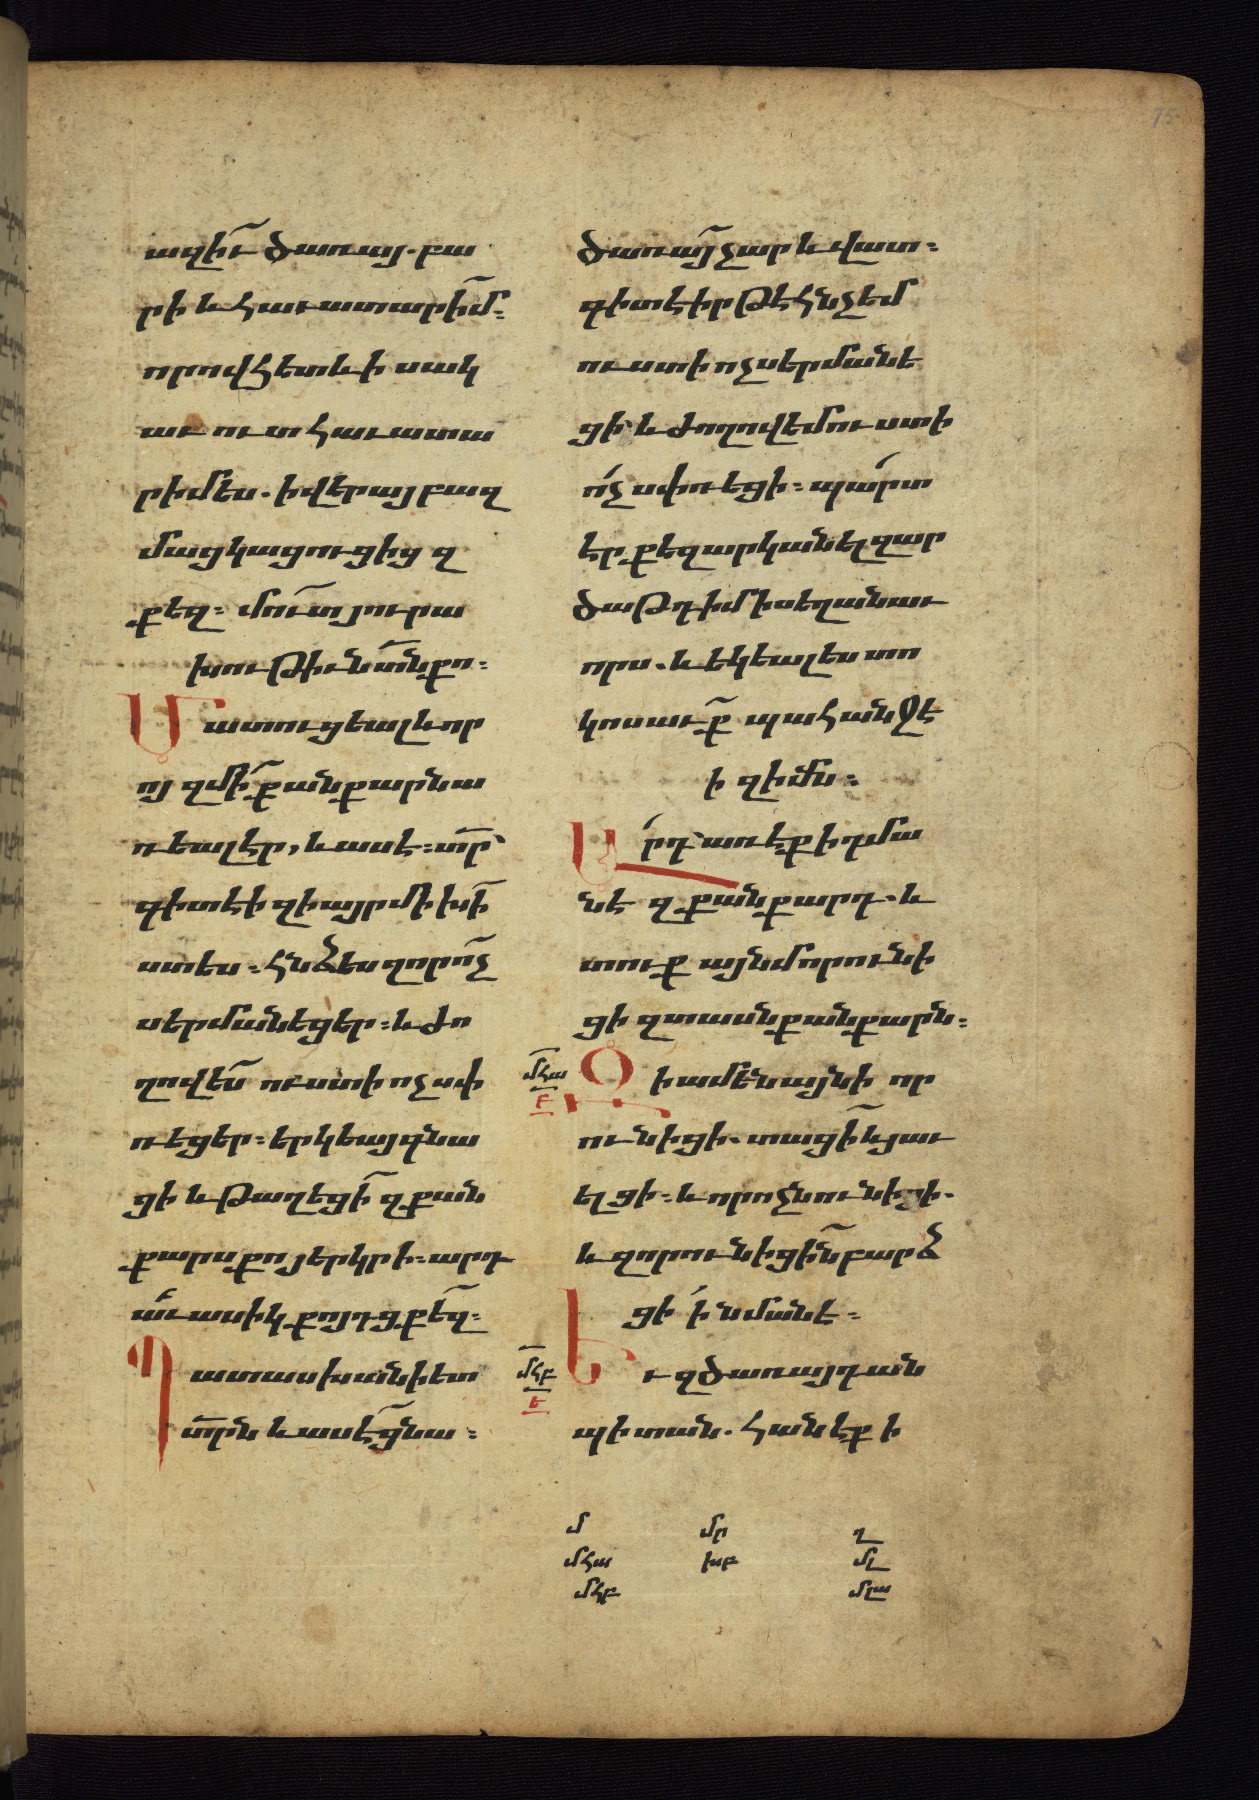 ազիւ ծառայ. բա
րի և հաւատարիմ.
որովհետև ի սակ
աւ ուտ հաւատա
րիմ ես. ի վերայ բազ
մաց կացուցից զ
քեզ։ մուտ յուրա
խութիւն տն քո։
Մատուցեալ և որ
ոյ զմի քանքարն ա
ռեալ էր, և ասէ։ տր՝
գիտէի զի այր մի խի
ստ ես։ հնձես զոր ոչ
սերմանեցեր։ և ժո
ղովես ուստի ոչ սփ
ռեցեր։ երկեայ գնա
ցի և թաղեցի զքան
քարս քո յերկրի։ արդ
աւասիկ քոյդ ց քեզ։
Պատասխանի ետ
տրն և ասէ ցնա։
ծառայ չար և վատ։
գիտէիր թէ հնձեմ
ուստի ոչ սերմանե
ցի՝ և ժողովեմ ուստի
ո՛չ սփռեցի։ պա՛րտ
էր քեզ արկանել զար
ծաթդ իմ ի սեղանաւ
որս. և եկեալ ես տո
կոսաւք պահանջէ
ի զիմն։
Ա՛րդ՝ առէք ի դմա
նէ զքանքարդ. և
տուք այնմ որ ունի
ցի զտասն քանքարն։
մհա
բ
Զի ամենայնի որ
ունիցի. տացի և յաւ
ելցի։ և որ ոչն ունիցի.
և զոր ունիցին բարձ
ցի ի՛ նմանէ։
մհբ
ե
Եւ զծառայդ ան
պիտան. հանէք ի
մ մը ղ
մհա խբ մլ
մհբ մլա